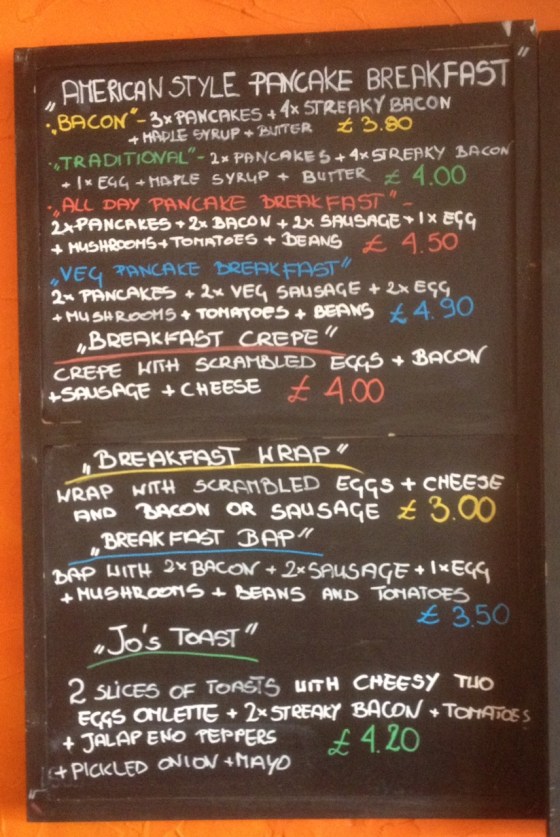 „AMERICAN STYLE PANCAKE BREAKFAST"
•„BACON"- 3x PANCAKES + 4x STREAKY BACON
+ MAPLE SYRUP + BUTTER £3.80
•„TRADITIONAL"- 2x PANCAKES + 4x STREAKY BACON
+ 1x EGG + MAPLE SYRUP + BUTTER £4.00
•„ALL DAY PANCAKE BREAKFAST"-
2x PANCAKES + 2x BACON + 2x SAUSAGE + 1x EGG
+ MUSHROOMS + TOMATOES + BEANS £4.50
„VEG PANCAKE BREAKFAST"
2x PANCAKES + 2x VEG SAUSAGE + 2x EGG
+ MUSHROOMS + TOMATOES + BEANS £4.90
„BREAKFAST CREPE"
CREPE WITH SCRAMBLED EGGS + BACON
+ SAUSAGE + CHEESE £4.00
„BREAKFAST WRAP"
WRAP WITH SCRAMBLED EGGS + CHEESE
AND BACON OR SAUSAGE £3.00
„BREAKFAST BAP"
BAP WITH 2x BACON + 2x SAUSAGE + 1x EGG
+ MUSHROOMS + BEANS AND TOMATOES
£3.50
„Jo's TOAST"
2 SLICES OF TOASTS WITH CHEESY TWO
EGGS OMLETTE + 2x STREAKY BACON + TOMATOES
+ JALAPENO PEPPERS £4.20
+ PICKLED ONION + MAYO